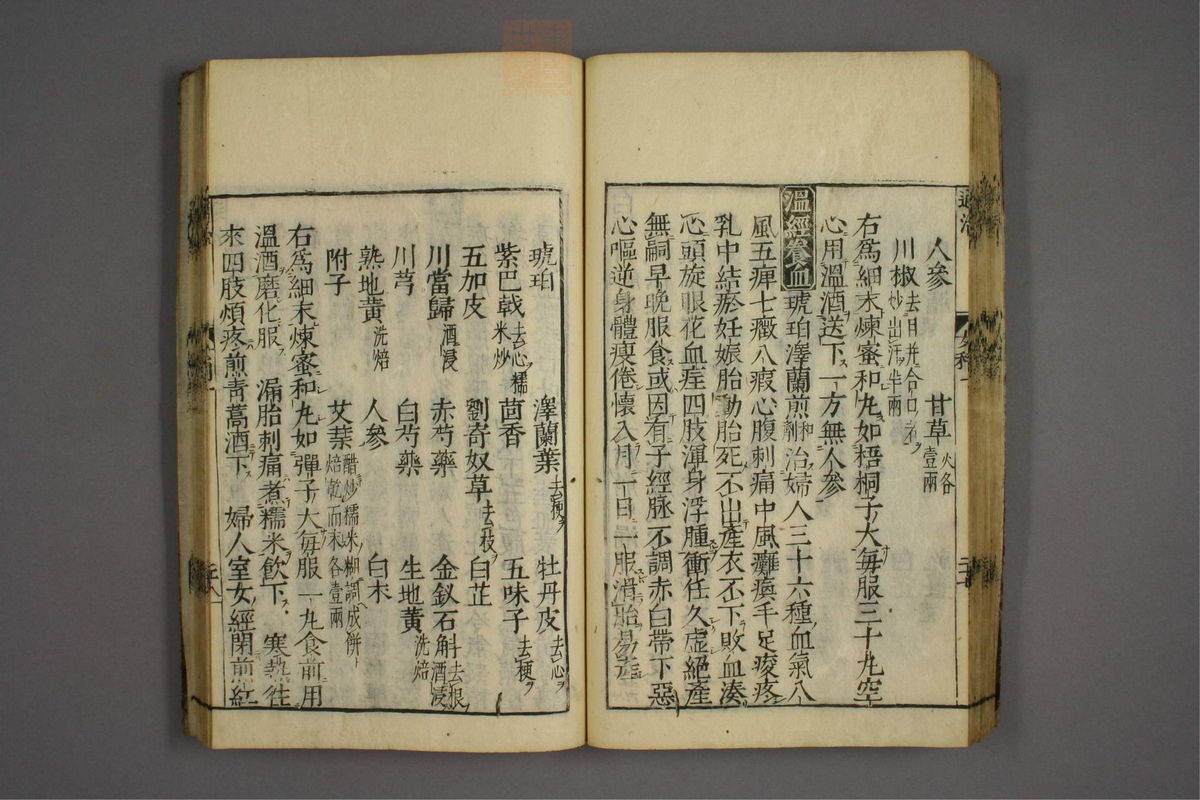 人參　　甘草火各壹兩
川椒去目并合口ノヲ炒出汗ヲ半兩
右爲細末煉蜜和丸如梧桐子大每服三十九空
心用溫酒送下一方無人參
溫經養血　琥珀澤蘭煎和劑治婦人三十六種血氣八
風五痺七癥八瘕心腹刺痛中風癱瘓手足痠疼
乳中結瘀妊娠胎動胎死不出產衣不下敗血湊
心頭旋眼花血症四肢渾身浮腫衝任久虛絕產
無嗣早晚服食或因有子經脉不調赤白帶下惡
心嘔逆身體瘦倦懷入月一日一服滑胎易產
琥珀　　澤蘭葉去梗ヲ　　牡丹皮去心ヲ
紫巴戟去心ヲ糯米炒　　茴香　　五味子去梗ヲ
五加皮　　劉寄奴草去枝ヲ　　白芷
川當歸酒浸　　赤芍藥　　金釵石斛去根ヲ酒浸
川芎　　白芍藥　　生地黃洗焙
熟地黃洗焙　　人參　　白朮
附子　　艾葉醋炒糯米ノ糊調成餅ト焙乾而末各壹兩
右爲細末煉蜜和丸如彈子大每服一丸食前用
溫酒磨化服　漏胎刺痛煮糯米飲下　寒熱往
來四肢煩疼煎靑蒿酒下　婦人室女經閉煎紅